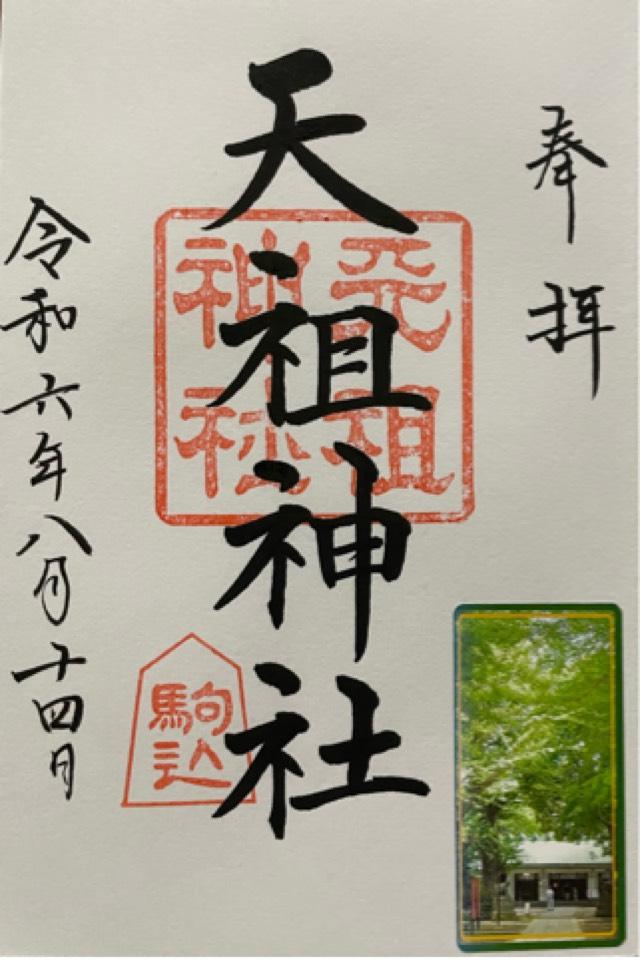 奉拝
天祖神社
天祖神社
駒込
令和六年八月十四日